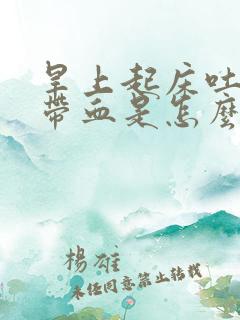 早上起床吐
帶血是怎麼
楊雄
未经同意禁止转载